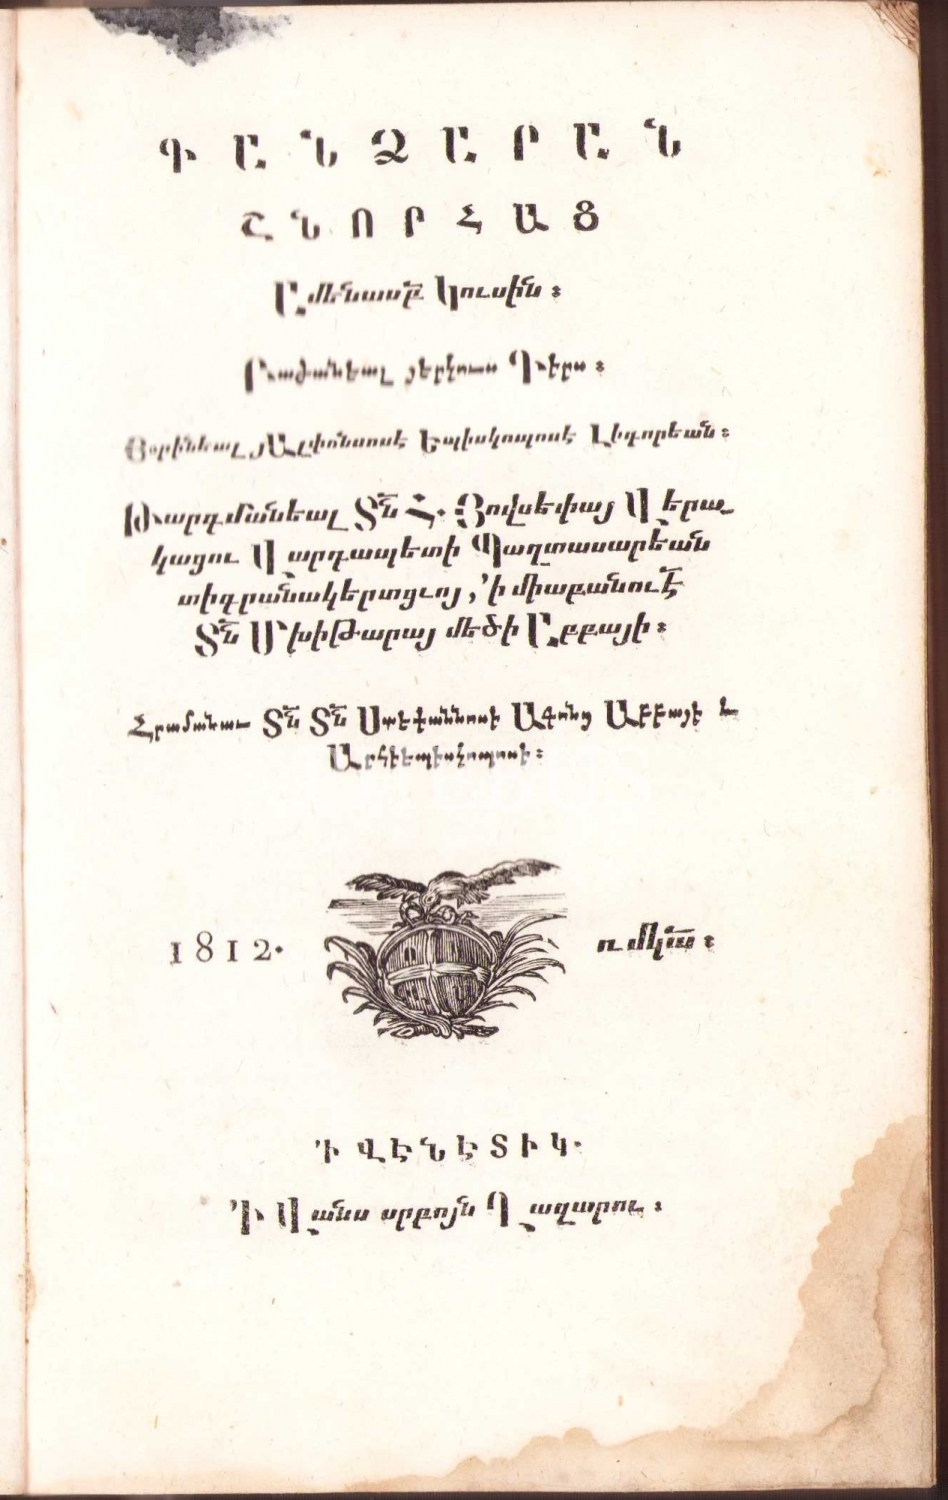 ԳԱՆՁԱՐԱՆ
ՇՆՈՐՀԱՑ
Ամենասբ Կուսին։
Բաժանեալ յերկուս Գիրս։
Յօրինեալ յԱլփոնսոսէ Եպիսկոպոսէ Լիգորեան։
Թարգմանեալ Տն Հ. Յովսեփայ Վերա֊
կացու Վարդապետի Պաղտասարեան
տիգրանակերտցւոյ, ՚ի միաբանուէ
Տն Մխիթարայ մեծի Աբբայի։
Հրամանաւ Տն Տն Ստեփաննոսի Ագոնց Աբբայի և
Արհիեպիսկոպոսի։
1812. ռմկա։
՚Ի ՎԵՆԵՏԻԿ.
՚Ի Վանս սրբոյն Ղազարու։